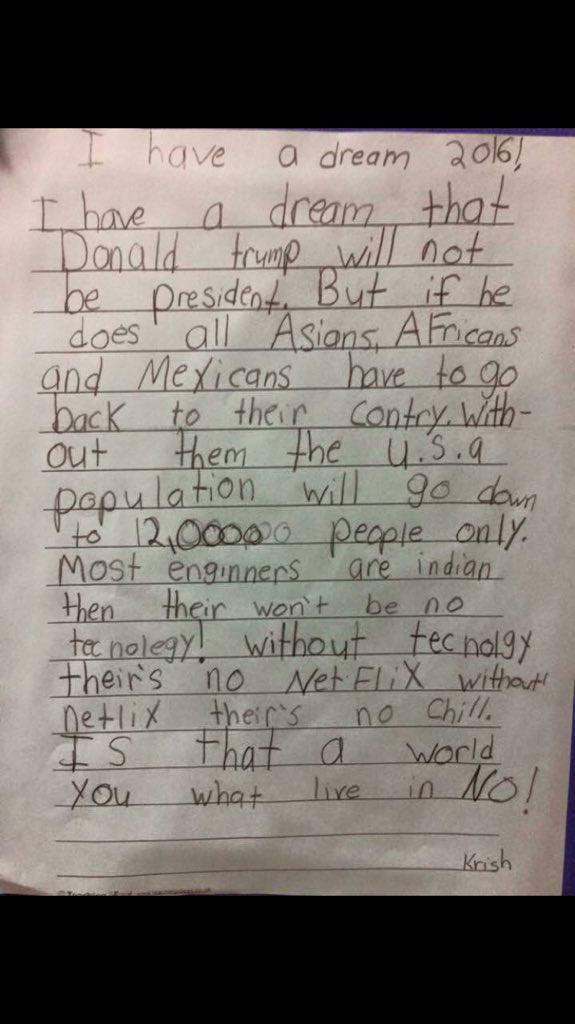 I have a dream 2016!
I have a dream that
Donald trump will not
be president. But if he
does all Asians, AFricans
and Mexicans have to go
back to their contry. With-
out them the U.S.a
population will go down
to 12,000000 people only.
Most enginners are indian
then their won't be no
tecnolegy! without tecnolgy
their's no NetFliX without
netlix their's no Chill.
IS that a world
You what live in NO!
Krish